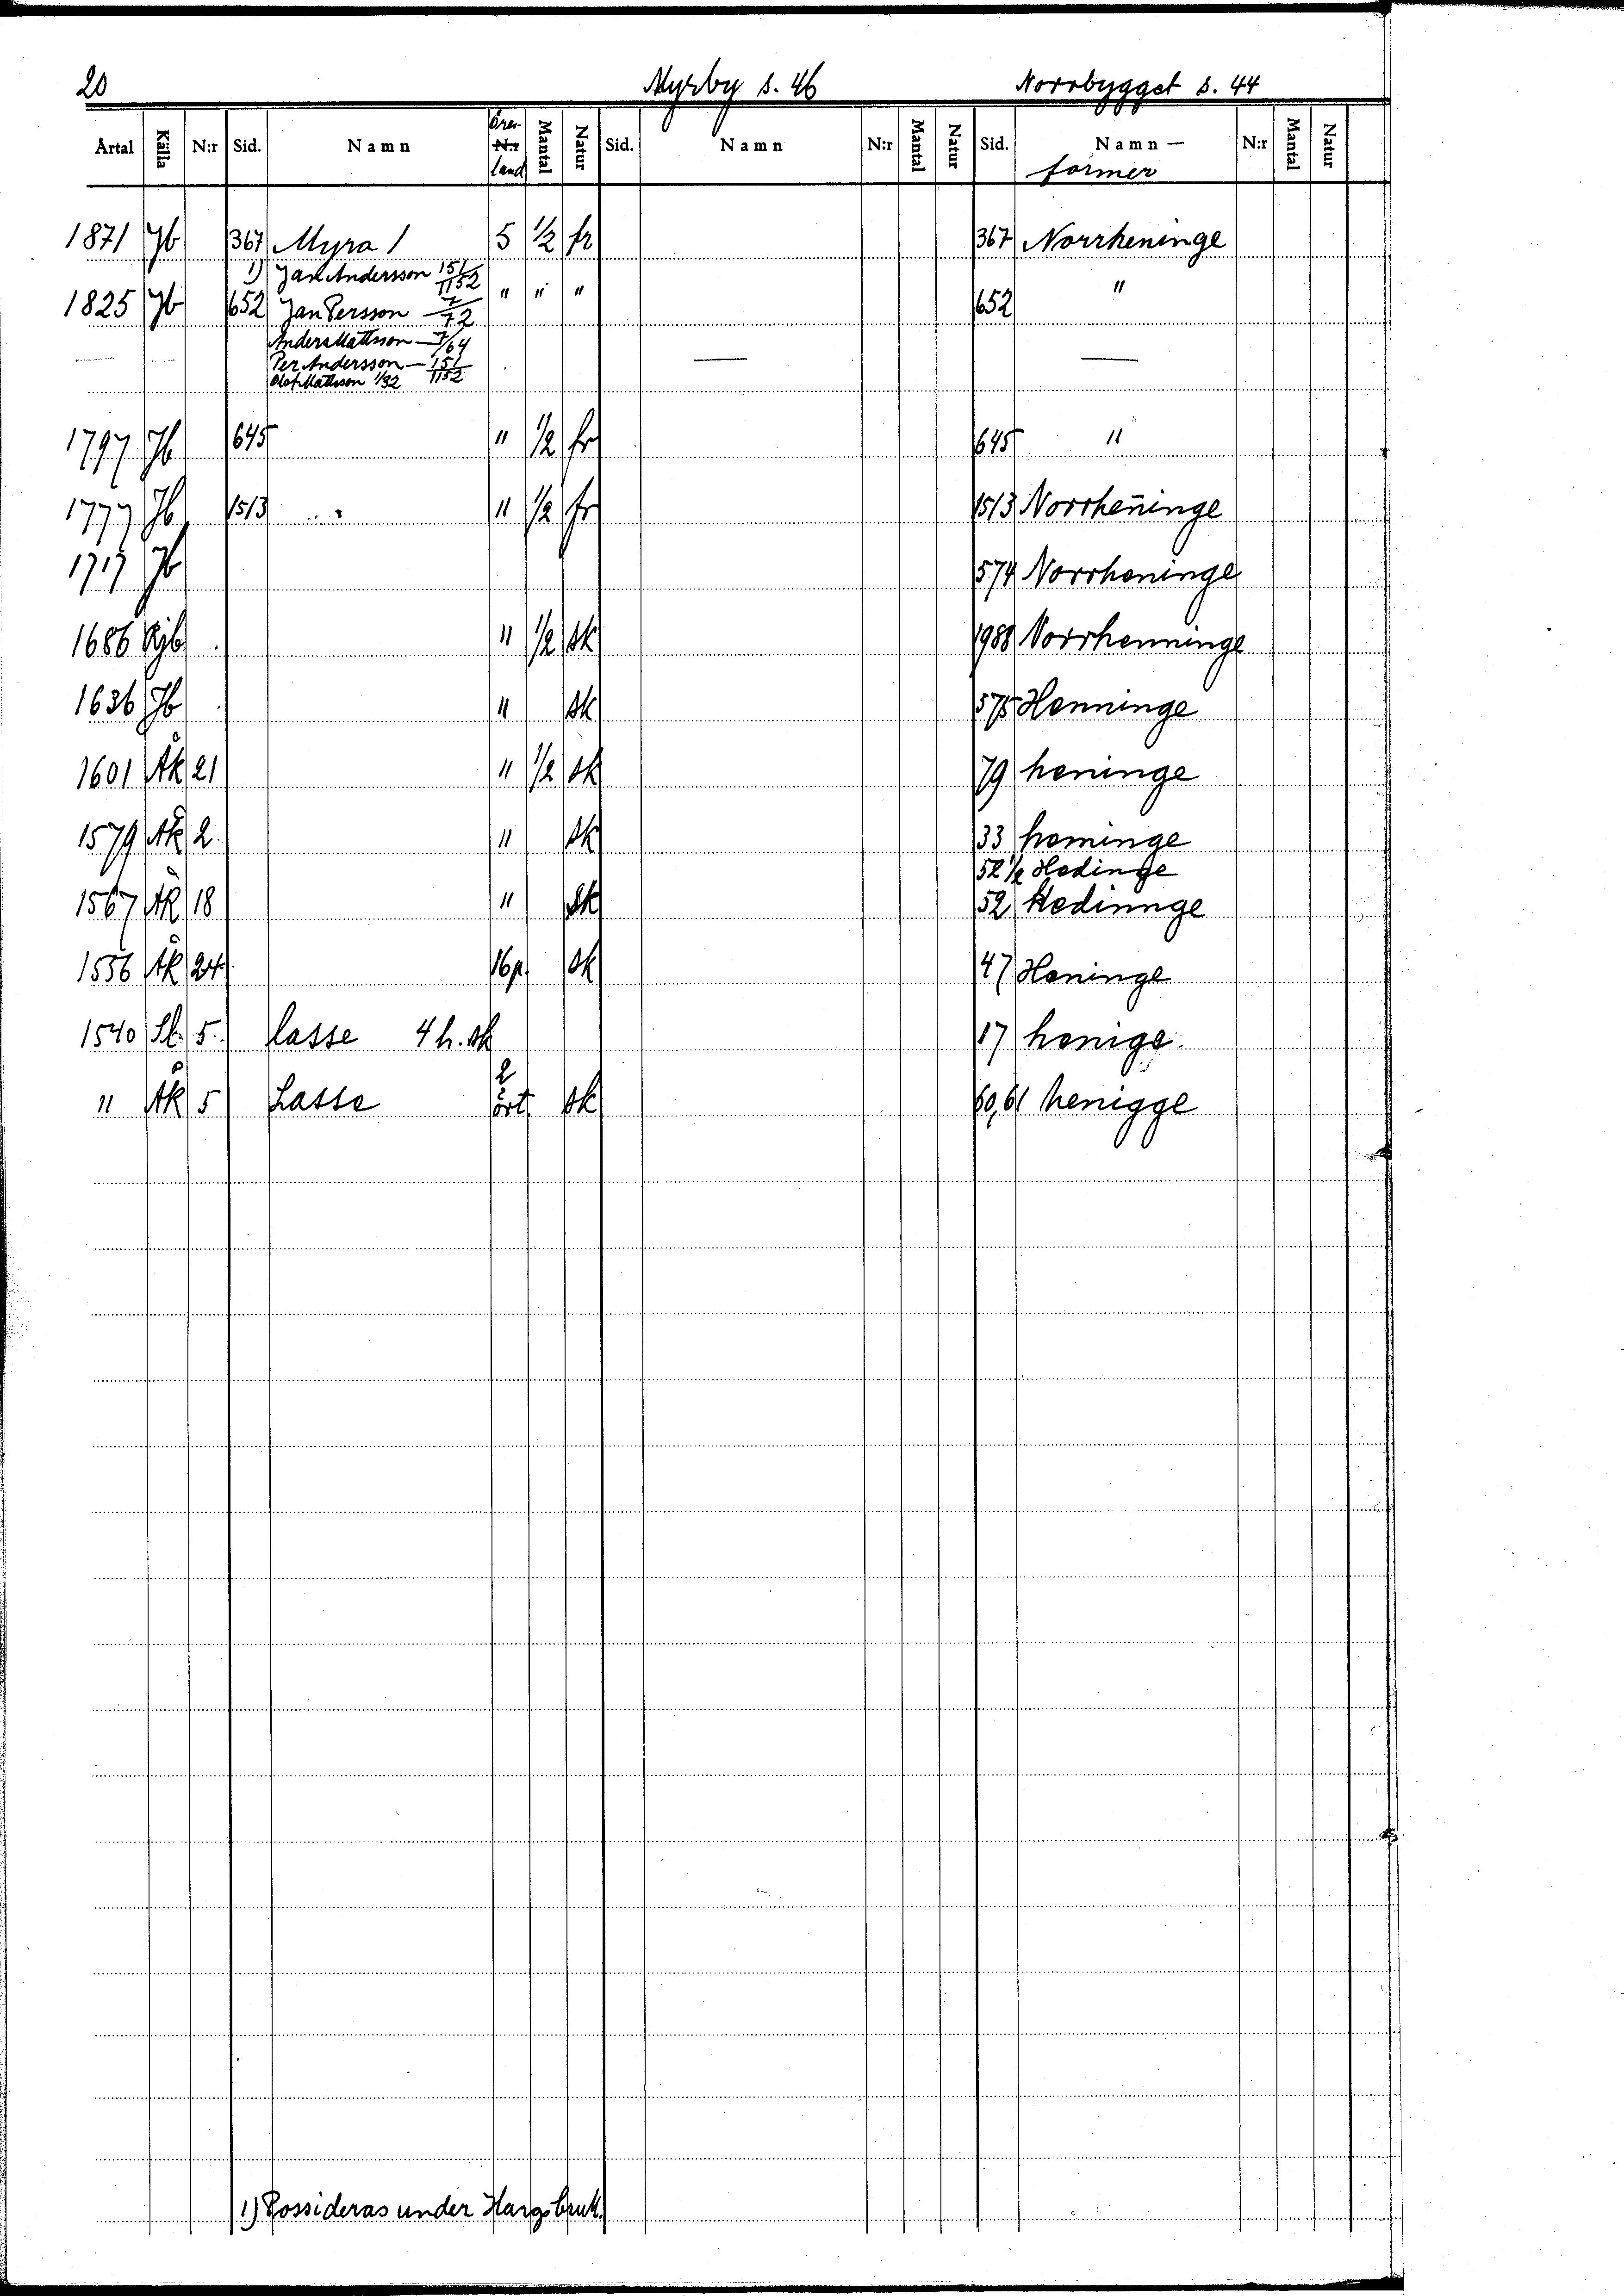 20 Myrby s. 46 Norrbygget s. 44
Årtal Källa N:r Sid. Namn Öres- N:r land Mantal Natur Sid. Namn N:r Mantal Natur Sid. Namn- former N:r Mantal Natur
1871 Jb 367 Myra 1 5 1/2 fr 367 Norrheninge
1) Jan Andersson 151/1152
1825 Jb 652 Jan Persson 7/72 " " " 652 "
Anders Mattsson - 7/64
Per Andersson - 151/1152 — —
Olof Mattsson 1/32
1797 Jb 645 " 1/2 fr 645 "
1777 Jb 1513 " 1/2 fr 1513 Norrhen̄inge
1717 Jb 574 Norrheninge
1686 Rjb " 1/2 sk 1988 Norrhenninge
1636 Jb " sk 575 Henninge
1601 Åk 21 " 1/2 sk 79 heninge
1579 Åk 2 " sk 33 heminge
52 1/2 Hedinge
1567 Åk 18 " sk 52 Hedinnge
1556 Åk 24 16p. sk 47 Heninge
1540 Sl. 5. lasse 4 h. sk 17 henige
" Åk 5 Lasse 2 ört. sk 60,61 henigge
1) Possideras under Hargsbruk.